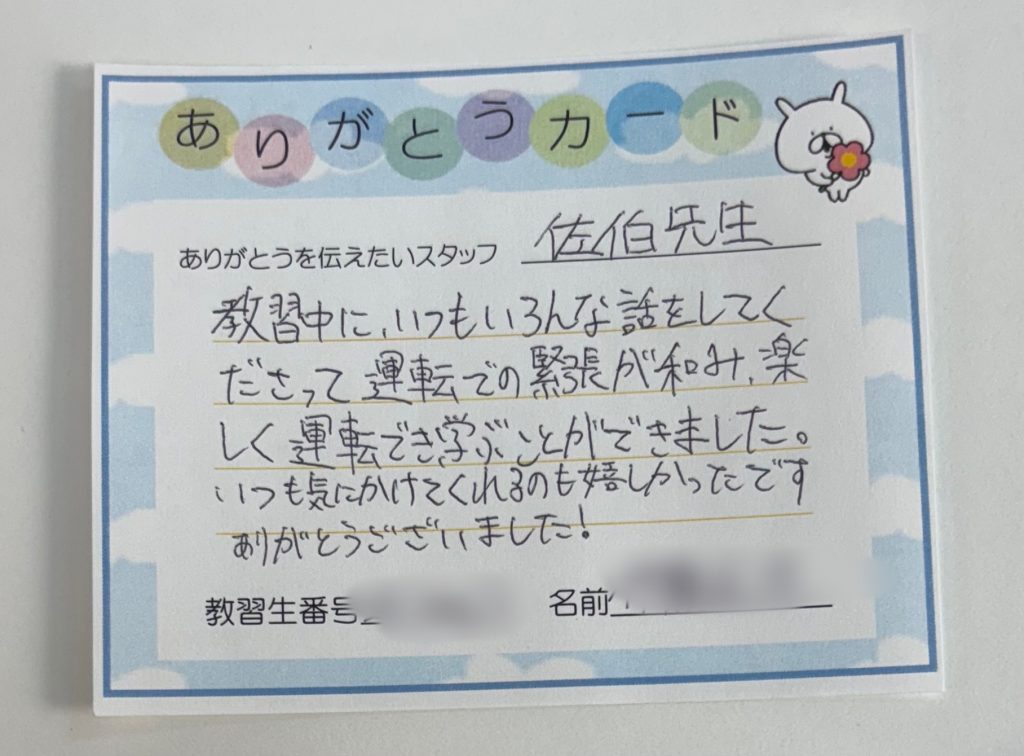 ありがとうカード
ありがとうを伝えたいスタッフ 佐伯先生
教習中に、いつもいろんな話をしてく
ださって運転での緊張が和み、楽
しく運転でき学ぶことができました。
いつも気にかけてくれるのも嬉しかったです
ありがとうございました!
教習生番号 名前